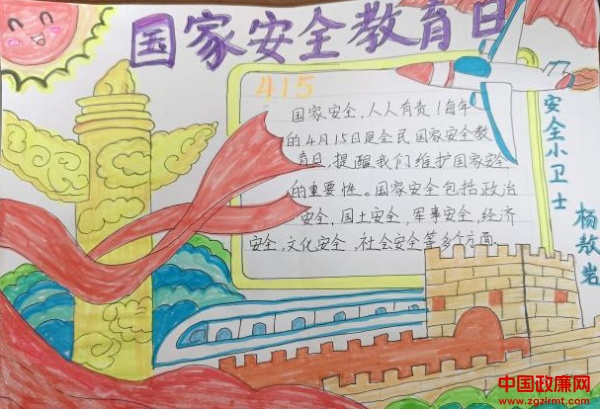 国家安全教育日
415
国家安全,人人有责!每年
的4月15日是全民国家安全教
育日,提醒我们维护国家安全
的重要性。国家安全包括政治
安全,国土安全,军事安全,经济
安全,文化安全,社会安全等多个方面.
安全小卫士
杨敖岩
中国政廉网
www.zgzlrmt.com